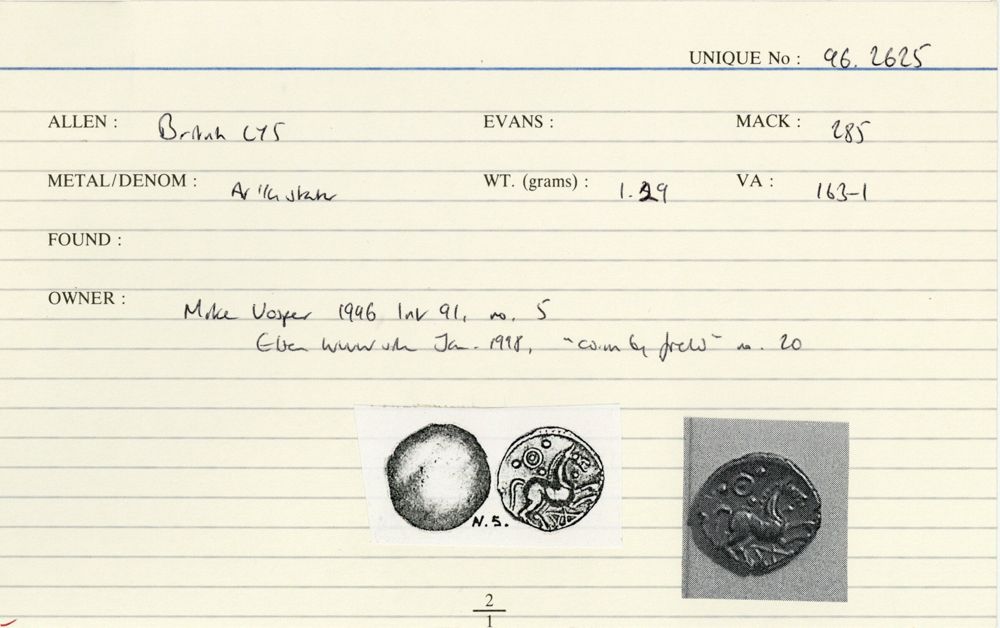 UNIQUE No : 96. 2625
ALLEN : British LY5 EVANS : MACK : 285
METAL/DENOM : AV 1/4 stater WT. (grams) : 1.29 VA : 163-1
FOUND :
OWNER : Mike Vosper 1996 List 91, no. 5
Elizabeth Jan. 1998, "coin by field" no. 20
N.S.
2
1